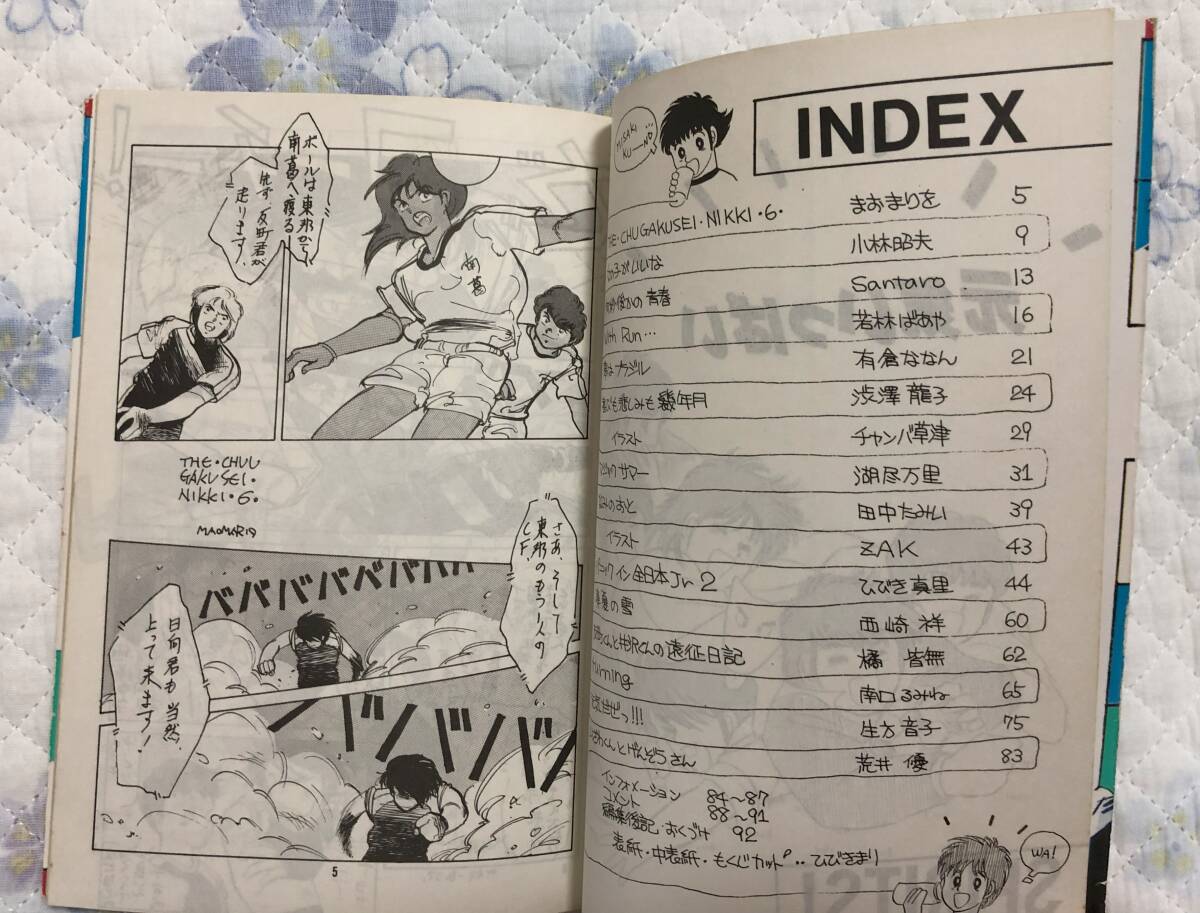 ボールは東邦から
南葛へ渡る
走ります。
南葛
THE・CHUU
GAKUSEI・
NIKKI・6・
MAOMARIO
さあ、そして
東邦のもう1人の
CF.
ババババババババ
日向君も当然
上って来ます!
バババババ
5
INDEX
MISAKI
KU--N♡
THE・CHUGAKUSEI・NIKKI・6・ まおまりを 5
がいいな 小林昭夫 9
青春 Santaro 13
with Run… 若林ばあや 16
ブラジル 有倉ななん 21
も悲しみも幾年月 渋澤龍子 24
イラスト チャンバ草津 29
サマー 湖尽万里 31
みのおと 田中たみい 39
イラスト ZAK 43
イン全日本Jr.2 ひびき真里 44
夏の雪 西崎祥 60
くんと井沢くんの遠征日記 橘皆無 62
urning 南口るみね 65
ぜっ!!! 生方音子 75
くんとげんぞうさん 荒井優 83
インフォメーション 84〜87
コメント 88〜91
編集後記・おくづけ 92
表紙・中表紙・もくじカット・・ひびきまり
WA!